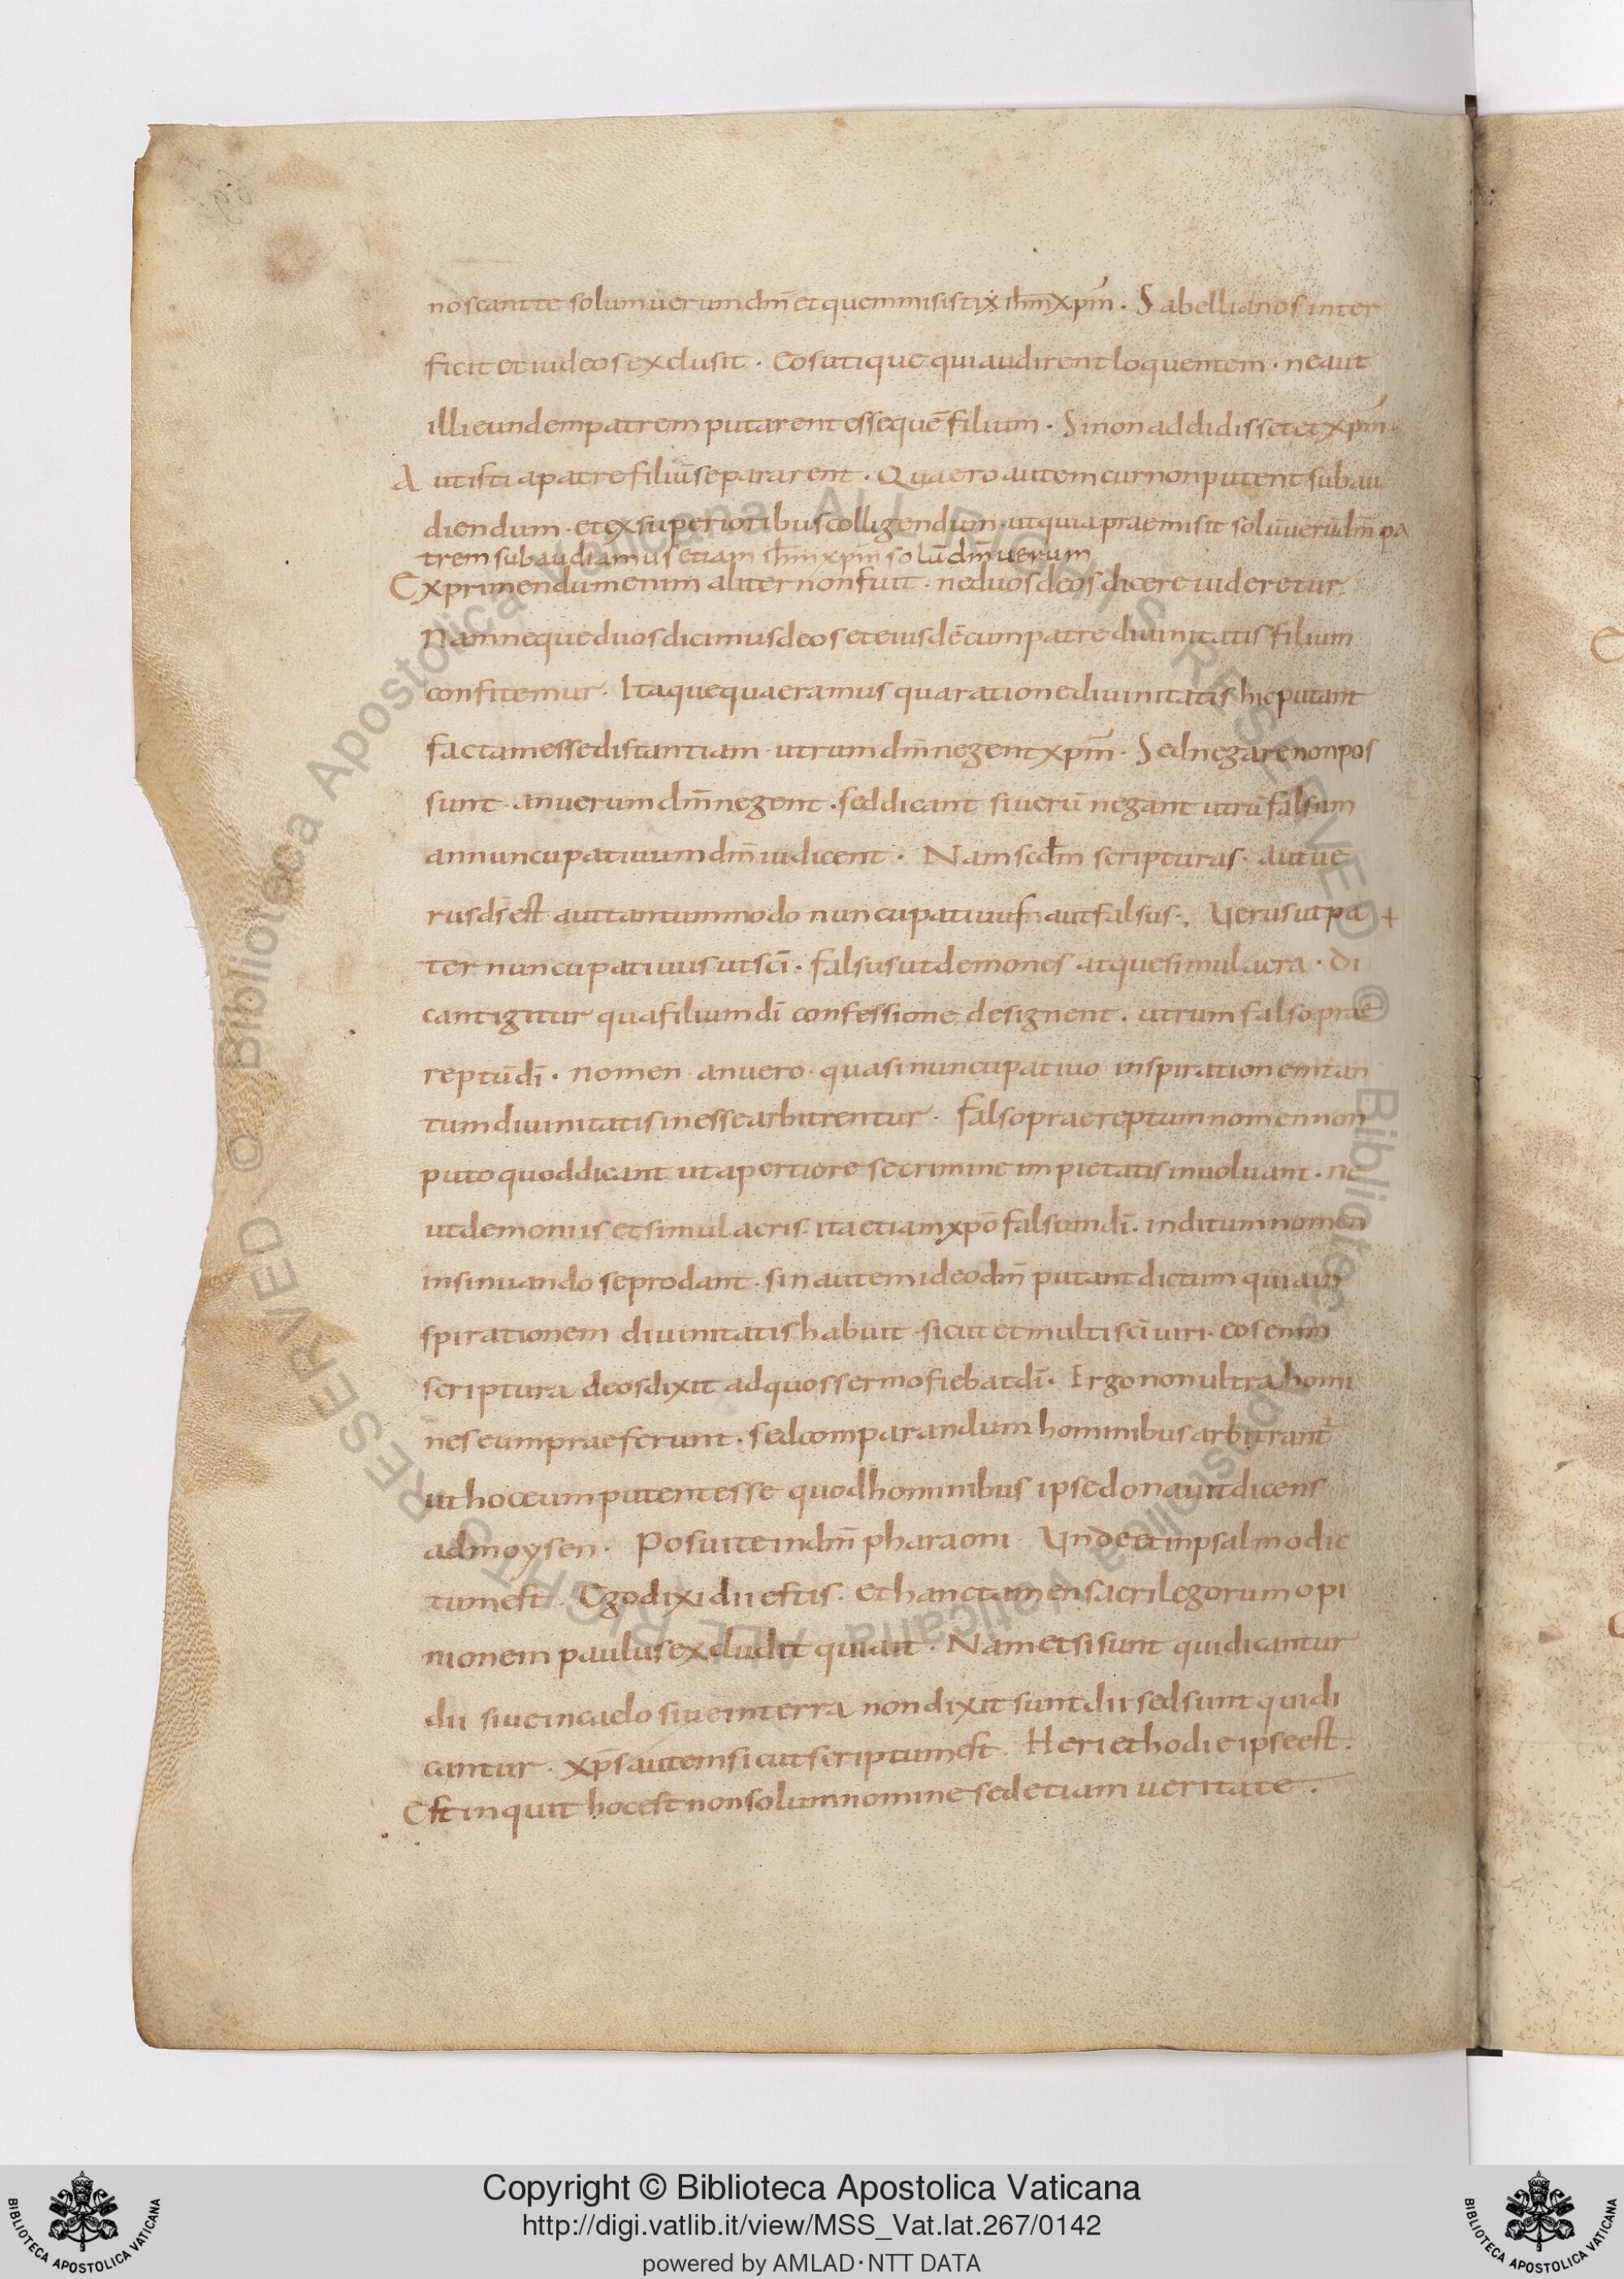 noscant te solum uerum dm̄ et quem misistix ih̄m xpm̄ · Sabellianos inter
ficit et iudeos exclusit · Eos utique qui audirent loquentem · ne aut
illi eundem patrem putarent esse quē filium · Si non addidisset et xpm̄ ·
Aut isti a patre filiū separarent · Quaero autem cur non putent subau
diendum · et ex superioribus colligendum · ut quia praemisit solū uerū dm̄ pa
trem subaudiamus etiam ih̄m xpm̄ solū dm̄ uerum
Exprimendum enim aliter non fuit · ne duos deos dicere uideretur
Nam neque duos dicimus deos et eiusdē cum patre diuinitatis filium
confitemur · Itaque quaeramus qua ratione diuinitatis hic putant
factam esse distantiam · utrum dm̄ negent xpm̄ · Sed negare non pos
sunt · an uerum dm̄ negent · sed dicant si uerū negant utrū falsum
an nuncupatiuum dm̄ iudicent · Nam scdm̄ scripturas · aut ue
rus ds̄ est aut tantummodo nuncupatiuus aut falsus · Uerus ut pa +
ter nuncupatiuus ut sci̅ · falsus ut demones · atque simulacra · di
cant igitur qua filium di̅ confessione designent · utrum falso prae
reptū di̅ · nomen an uero · quasi nuncupatiuo inspirationem tan
tum diuinitatis inesse arbitrentur · Falso praereptum nomen non
puto quod dicant ut apertiore se crimine impietatis inuoluant · ne
ut demoniis et simulacris ita etiam xpō falsum di̅ · inditum nomen
insinuando se prodant · sin autem ideo dm̄ putant dictum quia in
spirationem diuinitatis habuit · sicut et multi sci̅ uiri · eos enim
scriptura deos dixit ad quos sermo fiebat di̅ · Ergo non ultra homi
nes eum praeferunt · sed comparandum hominibus arbitrant̄
ut hoc eum putent esse quod hominibus ipse donauit dicens
ad moysen · Posui te in dm̄ pharaoni · Unde et in psalmo dic
tum est · Ego dixi dii estis · et hanc tamen sacrilegorum opi
nionem paulus excludit qui ait · Nam et si sunt qui dicantur
dii siue in caelo siue in terra non dixit sunt dii sed sunt qui di
cantur · xps̄ autem sicut scriptum est · Heri et hodie ipse est ·
Est inquit hoc est non solum nomine sed etiam ueritate ·
Copyright © Biblioteca Apostolica Vaticana
http://digi.vatlib.it/view/MSS_Vat.lat.267/0142
powered by AMLAD · NTT DATA
BIBLIOTECA APOSTOLICA VATICANA
BIBLIOTECA APOSTOLICA VATICANA